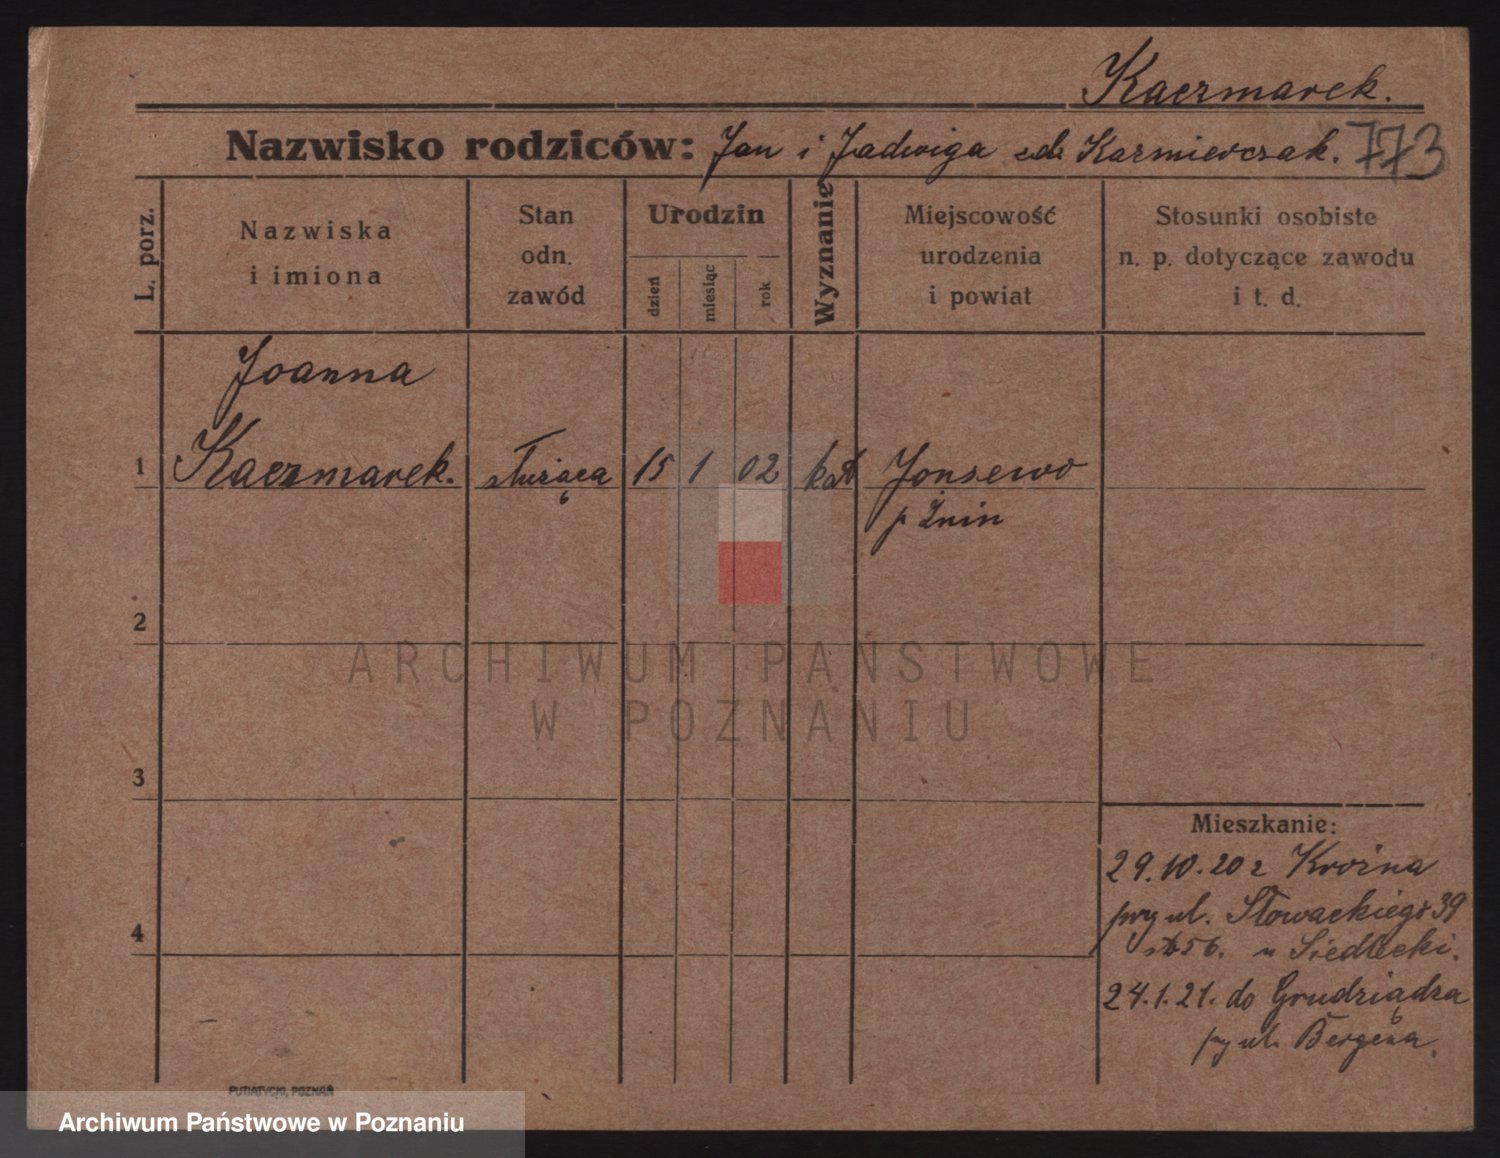 Kaczmarek.
Nazwisko rodziców: Jan i Jadwiga Kaźmierczak. 773
L. porz.
Nazwiska
i imiona
Stan
odn.
zawód
Urodzin
dzień
miesiąc
rok
Wyznanie
Miejscowość
urodzenia
i powiat
Stosunki osobiste
n. p. dotyczące zawodu
i t. d.
Joanna
1 Kaczmarek. służąca 15 1 02 kat
p Żnin
2
3
4
Mieszkanie:
29.10.20 z
przy ul. Słowackiego 39
u Siedlecki.
24.1.21. do Grudziądza
ul.
PUTIATYCKI, POZNAŃ
ARCHIWUM PAŃSTWOWE
W POZNANIU
Archiwum Państwowe w Poznaniu